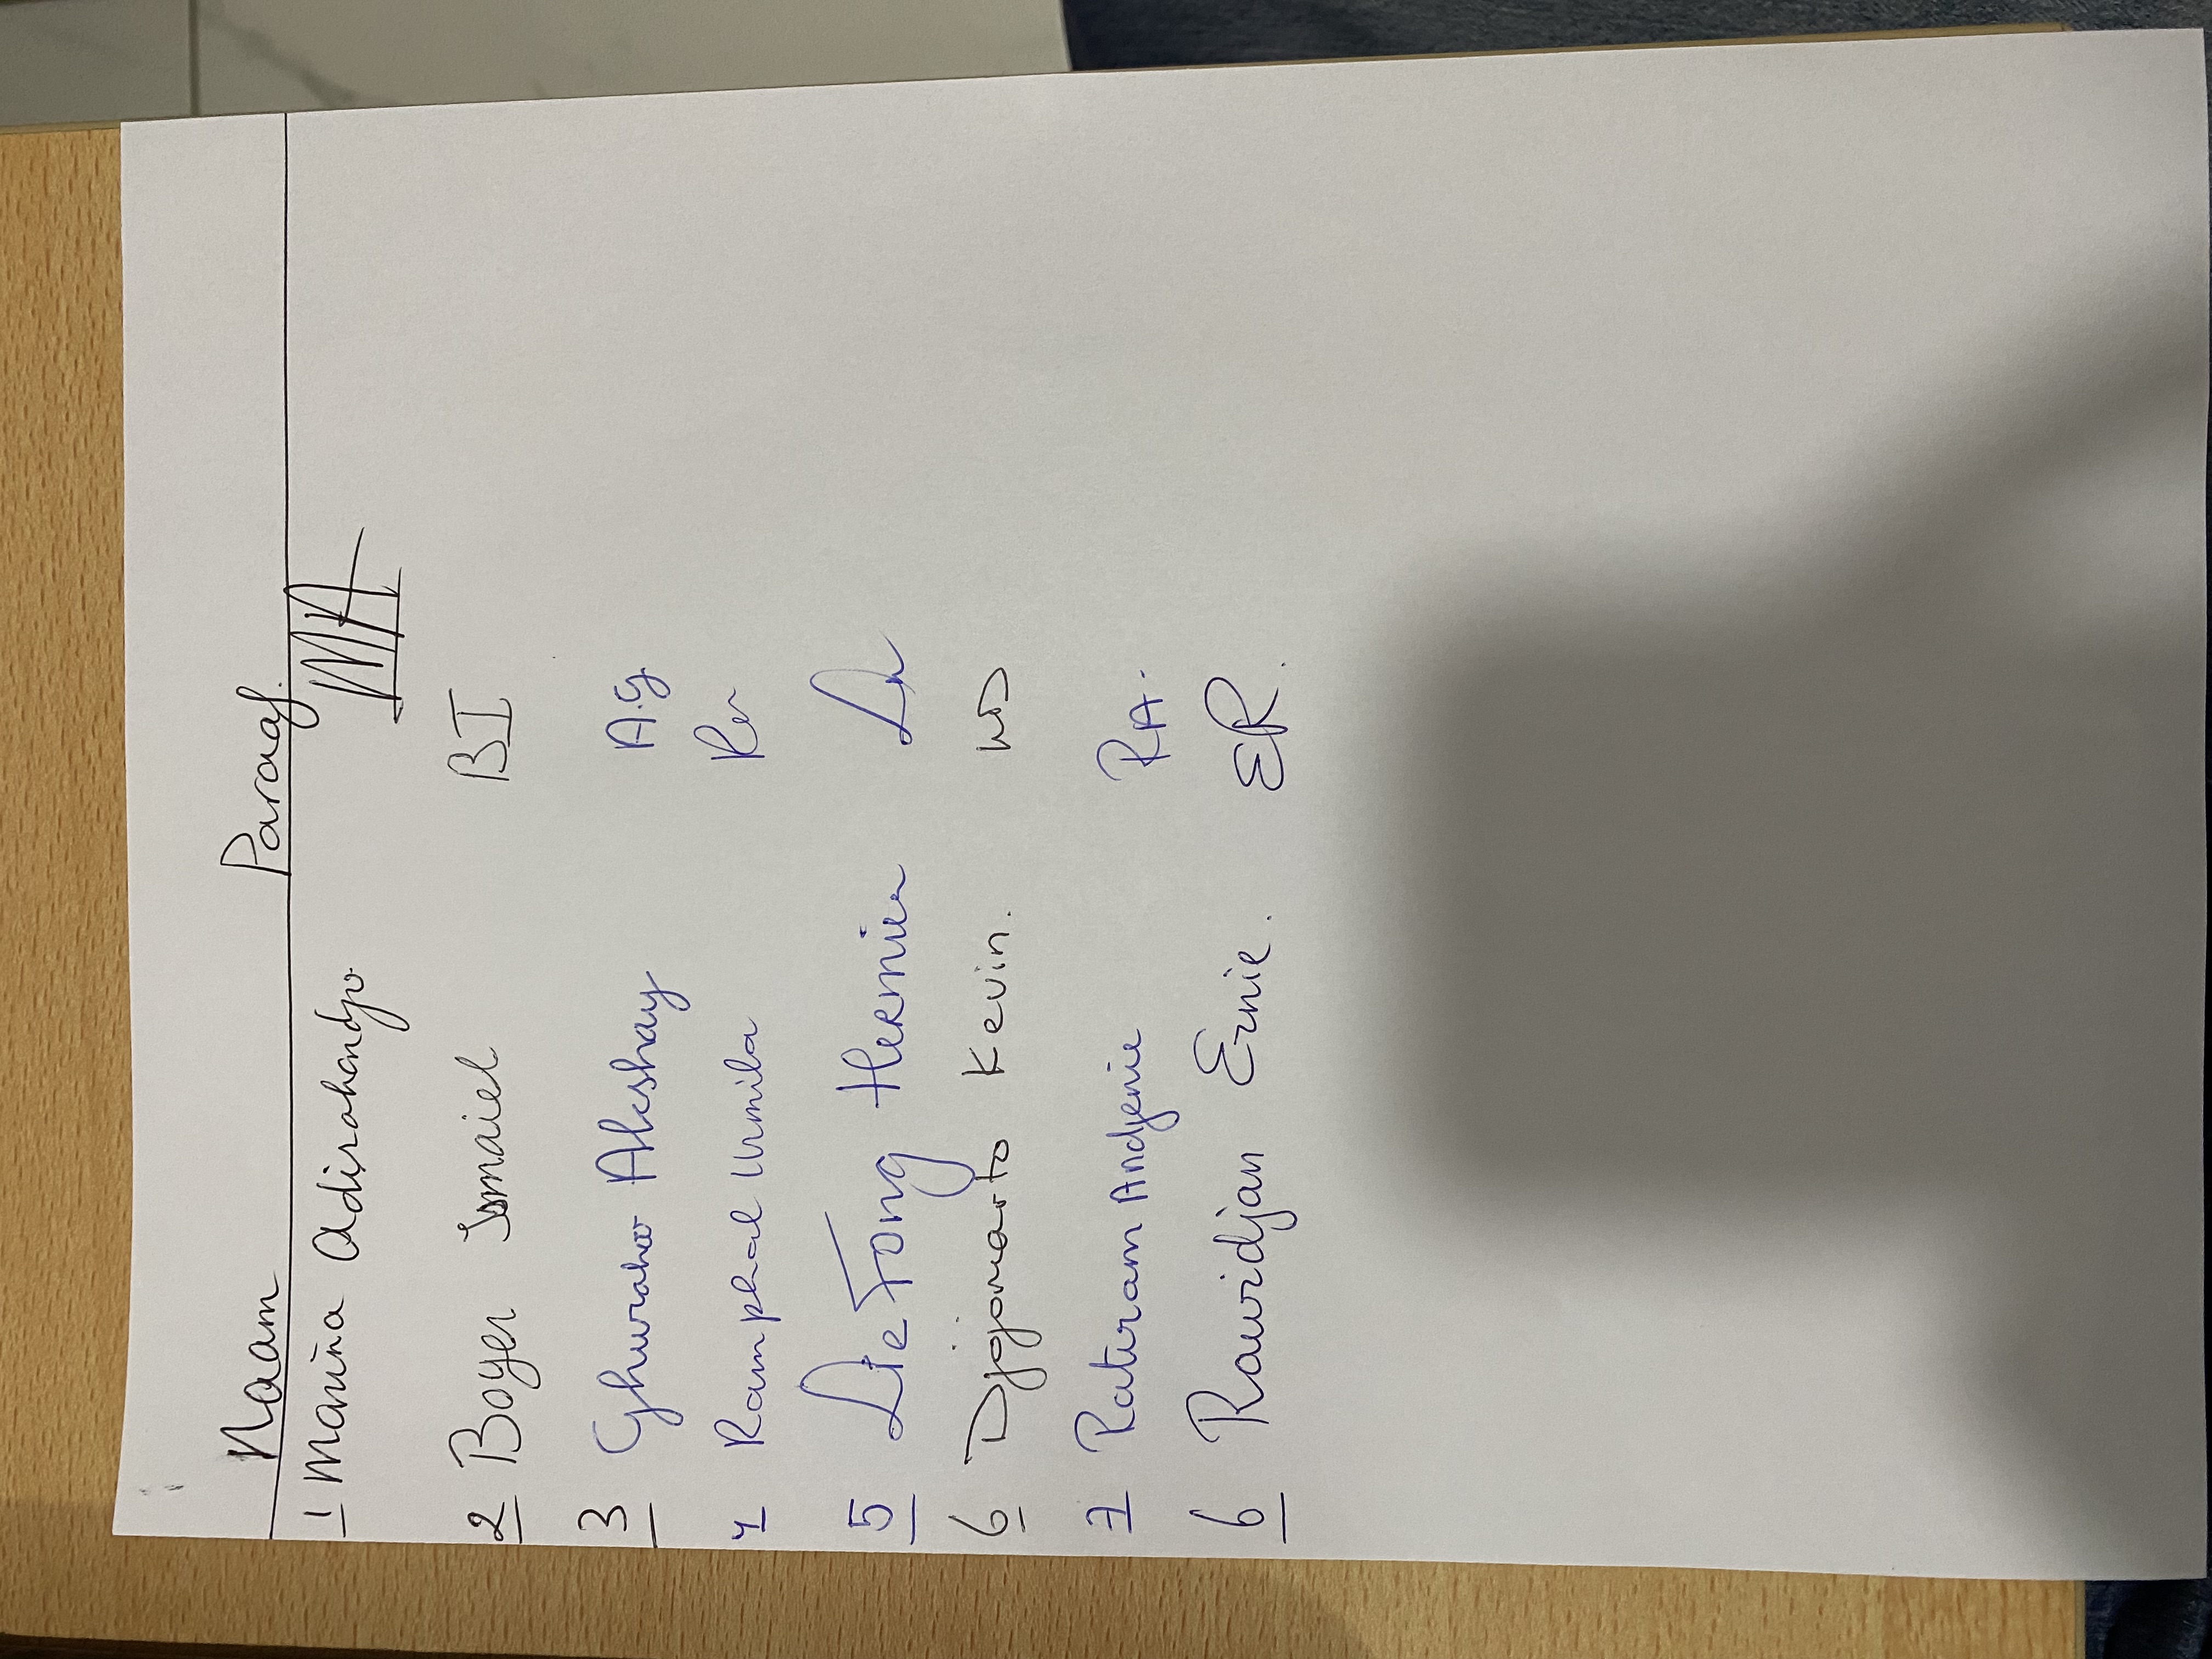 Naam Paraaf.
1 Marina Adisahandjo MA
2 Boyer Ismaiel BI
3 Ghurahoo Akshay A.G
4 Ramphal Urmila
5 Lie Fong Hermien
6 Djojomarto Kevin. KD
7 Ratiram Andjenie RA.
6 Rawidjan Ernie. ER.